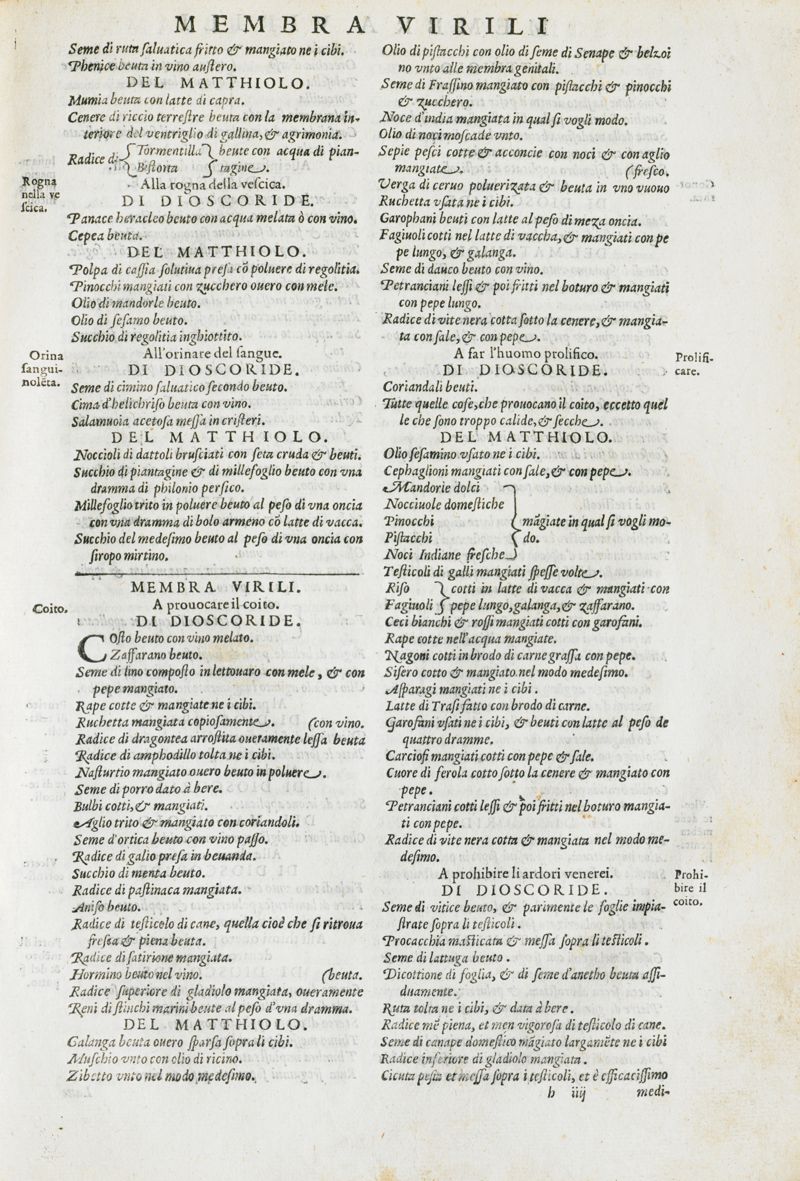 MEMBRA VIRILI
Seme di ruta saluatica fritto & mangiato ne i cibi.
Phenice beuta in vino austero.
DEL MATTHIOLO.
Mumia beuta con latte di capra.
Cenere di riccio terrestre beuta con la membrana in-
teriore del ventriglio di gallina, & agrimonia.
Radice di { Tormentilla } beute con acqua di pian-
{ Bistorta } tagine.
Rogna
nella ve
scica.
Alla rogna della vescica.
DI DIOSCORIDE.
Panace heracleo beuto con acqua melata ò con vino.
Cepea beuta.
DEL MATTHIOLO.
Polpa di cassia solutiua presa cō poluere di regolitia.
Pinocchi mangiati con zucchero ouero con mele.
Olio di mandorle beuto.
Olio di sesamo beuto.
Succhio di regolitia inghiottito.
Orina
sangui-
nolēta.
All'orinare del sangue.
DI DIOSCORIDE.
Seme di cimino saluatico secondo beuto.
Cima d'helichriso beuta con vino.
Salamuoia acetosa messa in cristeri.
DEL MATTHIOLO.
Noccioli di dattoli brusciati con seta cruda & beuti.
Succhio di piantagine & di millefoglio beuto con vna
dramma di philonio persico.
Millefoglio trito in poluere beuto al peso di vna oncia
con vna dramma di bolo armeno cō latte di vacca.
Succhio del medesimo beuto al peso di vna oncia con
siropo mirtino.
MEMBRA VIRILI.
Coito.
A prouocare il coito.
DI DIOSCORIDE.
COsto beuto con vino melato.
Zaffarano beuto.
Seme di lino composto in lettouaro con mele, & con
pepe mangiato.
Rape cotte & mangiate ne i cibi.
Ruchetta mangiata copiosamente. (con vino.
Radice di dragontea arrostita oueramente lessa beuta
Radice di amphodillo tolta ne i cibi.
Nasturtio mangiato ouero beuto in poluere.
Seme di porro dato à bere.
Bulbi cotti, & mangiati.
Aglio trito & mangiato con coriandoli.
Seme d'ortica beuto con vino passo.
Radice di galio presa in beuanda.
Succhio di menta beuto.
Radice di pastinaca mangiata.
Aniso beuto.
Radice di testicolo di cane, quella cioè che si ritroua
fresca & piena beuta.
Radice di satirione mangiata.
Hormino beuto nel vino. (beuta.
Radice superiore di gladiolo mangiata, oueramente
Reni di stinchi marini beute al peso d'vna dramma.
DEL MATTHIOLO.
Galanga beuta ouero sparsa sopra li cibi.
Muschio vnto con olio di ricino.
Zibetto vnto nel modo medesimo.
Olio di pistacchi con olio di seme di Senape & belzoi
no vnto alle membra genitali.
Seme di Frassino mangiato con pistacchi & pinocchi
& zucchero.
Noce d'india mangiata in qual si vogli modo.
Olio di noci moscade vnto.
Sepie pesci cotte & acconcie con noci & con aglio
mangiate. (fresco.
Verga di ceruo poluerizata & beuta in vno vuouo
Ruchetta vsata ne i cibi.
Garophani beuti con latte al peso di meza oncia.
Fagiuoli cotti nel latte di vaccha, & mangiati con pe
pe lungo, & galanga.
Seme di dauco beuto con vino.
Petranciani lessi & poi fritti nel boturo & mangiati
con pepe lungo.
Radice di vite nera cotta sotto la cenere, & mangia-
ta con sale, & con pepe.
Prolifi-
care.
A far l'huomo prolifico.
DI DIOSCORIDE.
Coriandali beuti.
Tutte quelle cose, che prouocano il coito, eccetto quel
le che sono troppo calide, & secche.
DEL MATTHIOLO.
Olio sesamino vsato ne i cibi.
Cephaglioni mangiati con sale, & con pepe.
Mandorle dolci
Nocciuole domestiche
Pinocchi } māgiate in qual si vogli mo-
Pistacchi } do.
Noci Indiane fresche
Testicoli di galli mangiati spesse volte.
Riso } cotti in latte di vacca & mangiati con
Fagiuoli } pepe lungo, galanga, & zaffarano.
Ceci bianchi & rossi mangiati cotti con garofani.
Rape cotte nell'acqua mangiate.
Nagoni cotti in brodo di carne grassa con pepe.
Sisero cotto & mangiato nel modo medesimo.
Asparagi mangiati ne i cibi.
Latte di Trasi fatto con brodo di carne.
Garofani vsati ne i cibi, & beuti con latte al peso de
quattro dramme.
Carciofi mangiati cotti con pepe & sale.
Cuore di ferola cotto sotto la cenere & mangiato con
pepe.
Petranciani cotti lessi & poi fritti nel boturo mangia-
ti con pepe.
Radice di vite nera cotta & mangiata nel modo me-
desimo.
Prohi-
bire il
coito.
A prohibire li ardori venerei.
DI DIOSCORIDE.
Seme di vitice beuto, & parimente le foglie impia-
strate sopra li testicoli.
Procacchia masticata & messa sopra li testicoli.
Seme di lattuga beuto.
Dicottione di foglia, & di seme d'anetho beuta assi-
duamente.
Ruta tolta ne i cibi, & data à bere.
Radice mē piena, et men vigorosa di testicolo di cane.
Seme di canape domestico māgiato largamēte ne i cibi
Radice inferiore di gladiolo mangiata.
Cicuta pesta et messa sopra i testicoli, et è efficacissimo
b iiij medi-